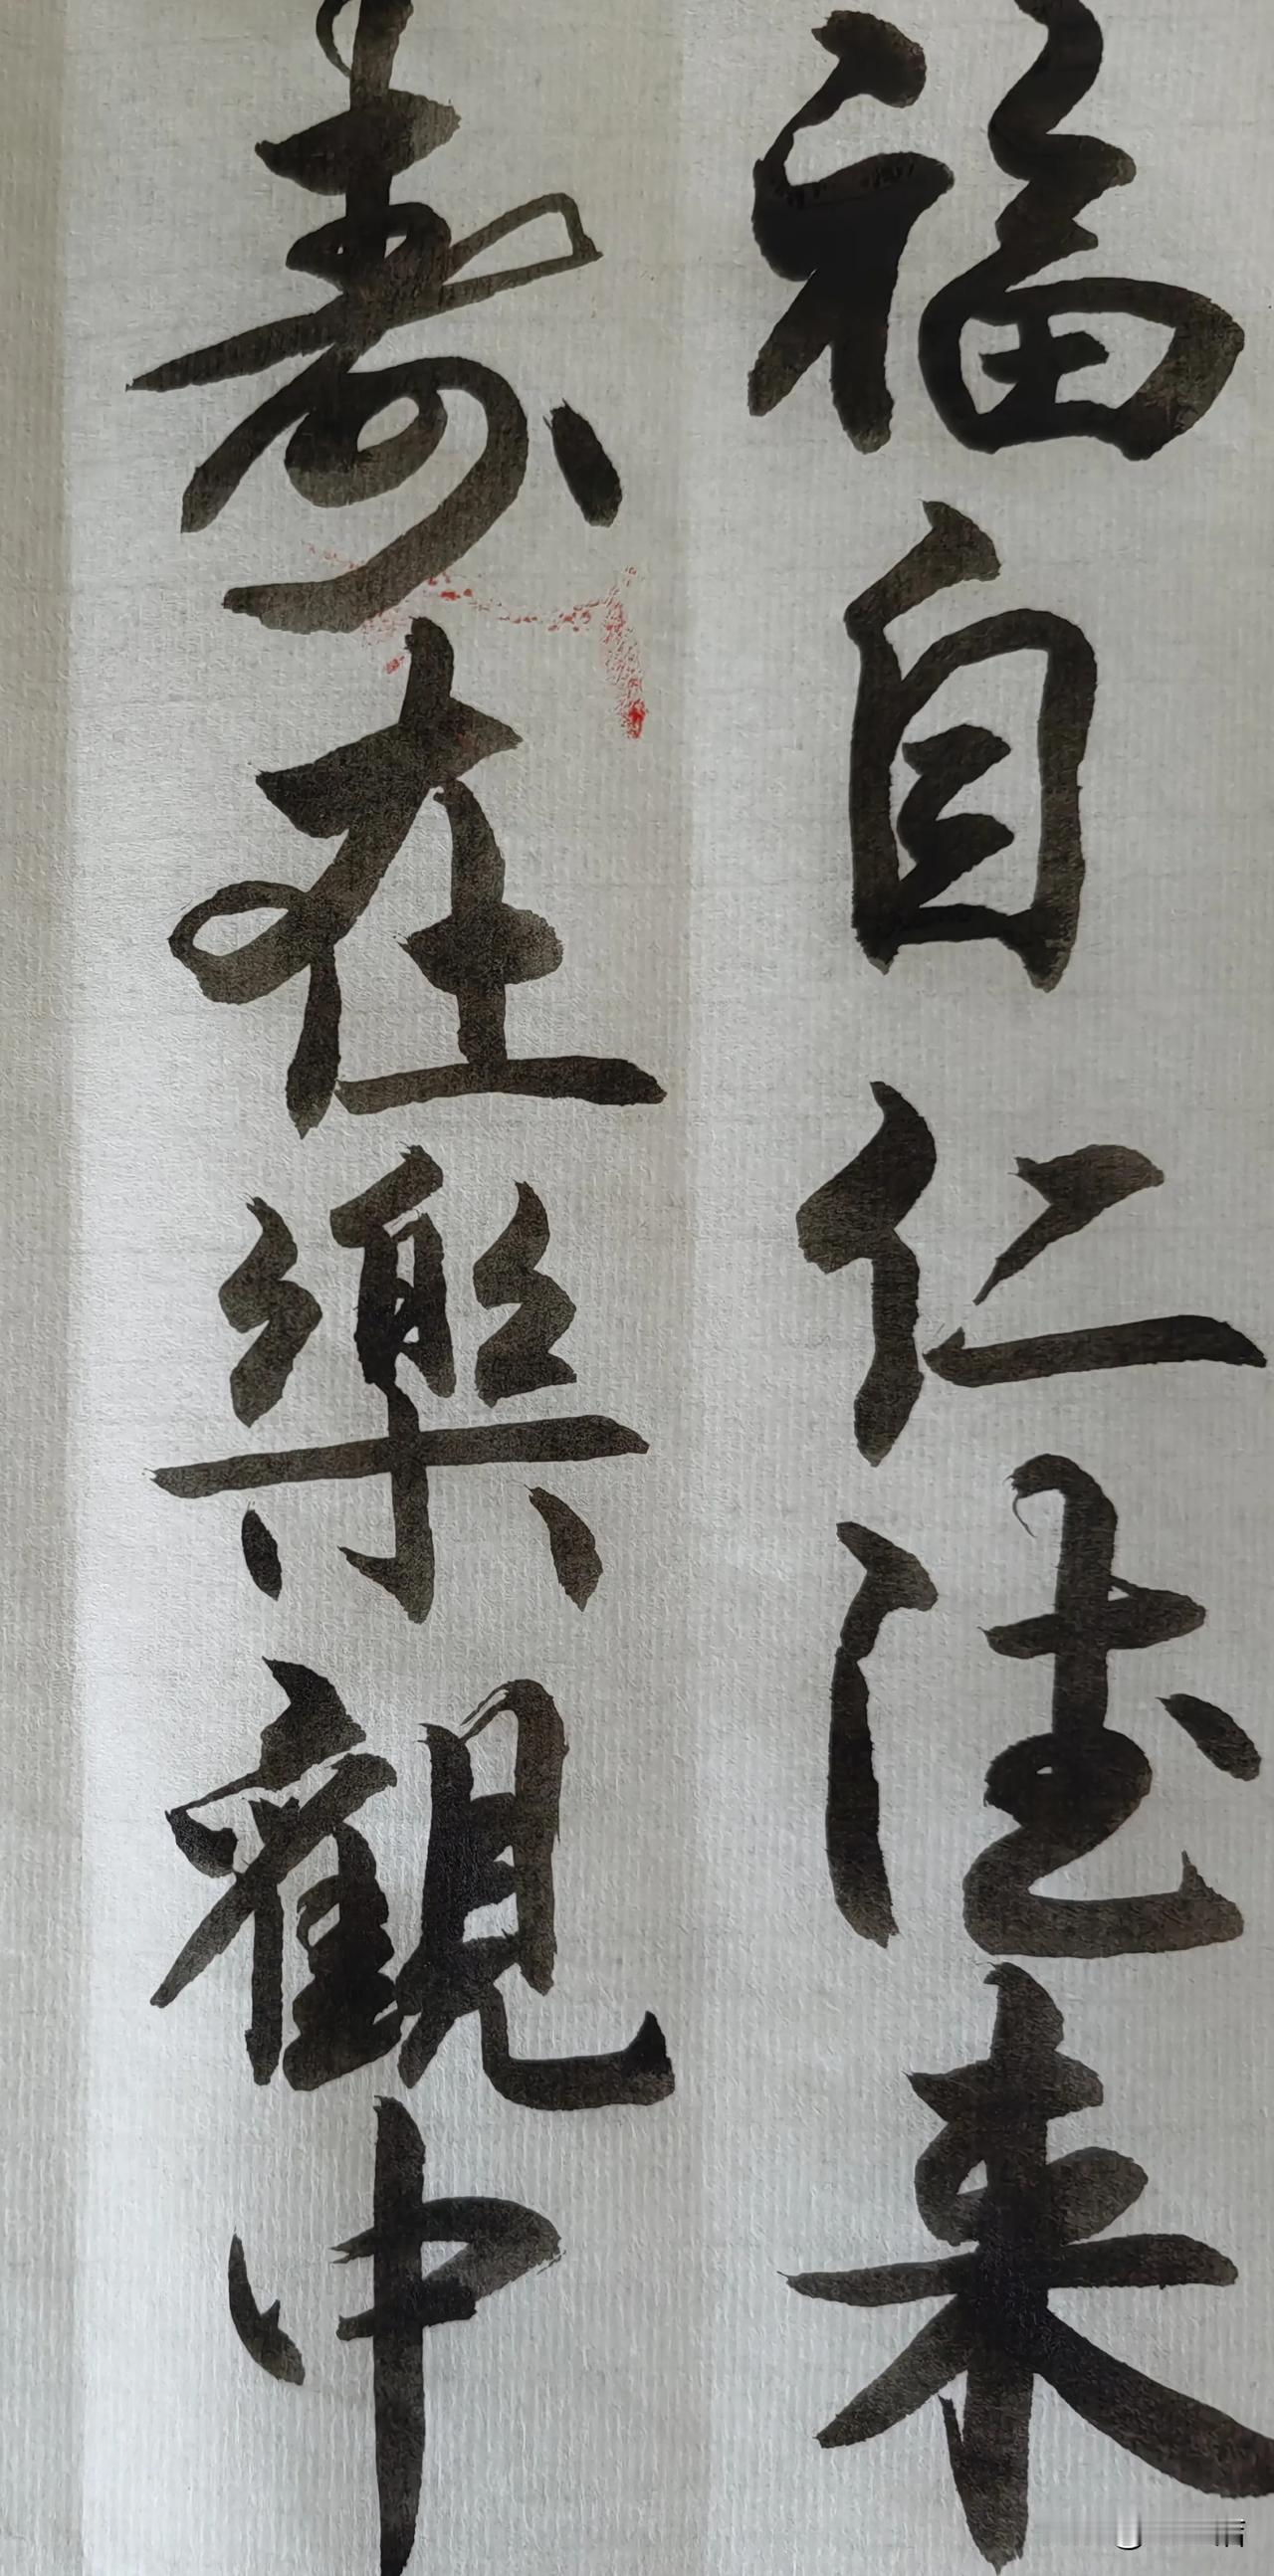 福自仁德来
寿在樂觀中